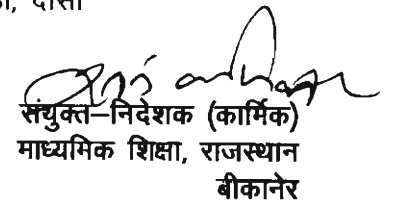 दौसा
संयुक्त–निदेशक (कार्मिक)
माध्यमिक शिक्षा, राजस्थान
बीकानेर